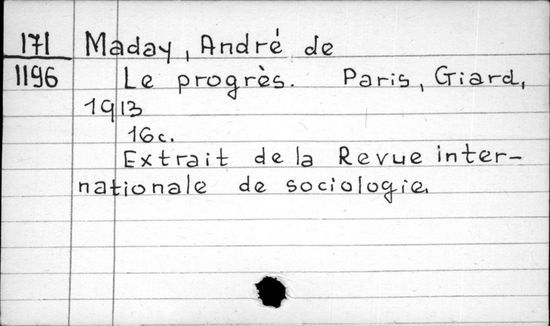 171
1196
Maday, André de
Le progrès. Paris, Giard,
1913
16c.
Extrait de la Revue inter-
nationale de sociologie.